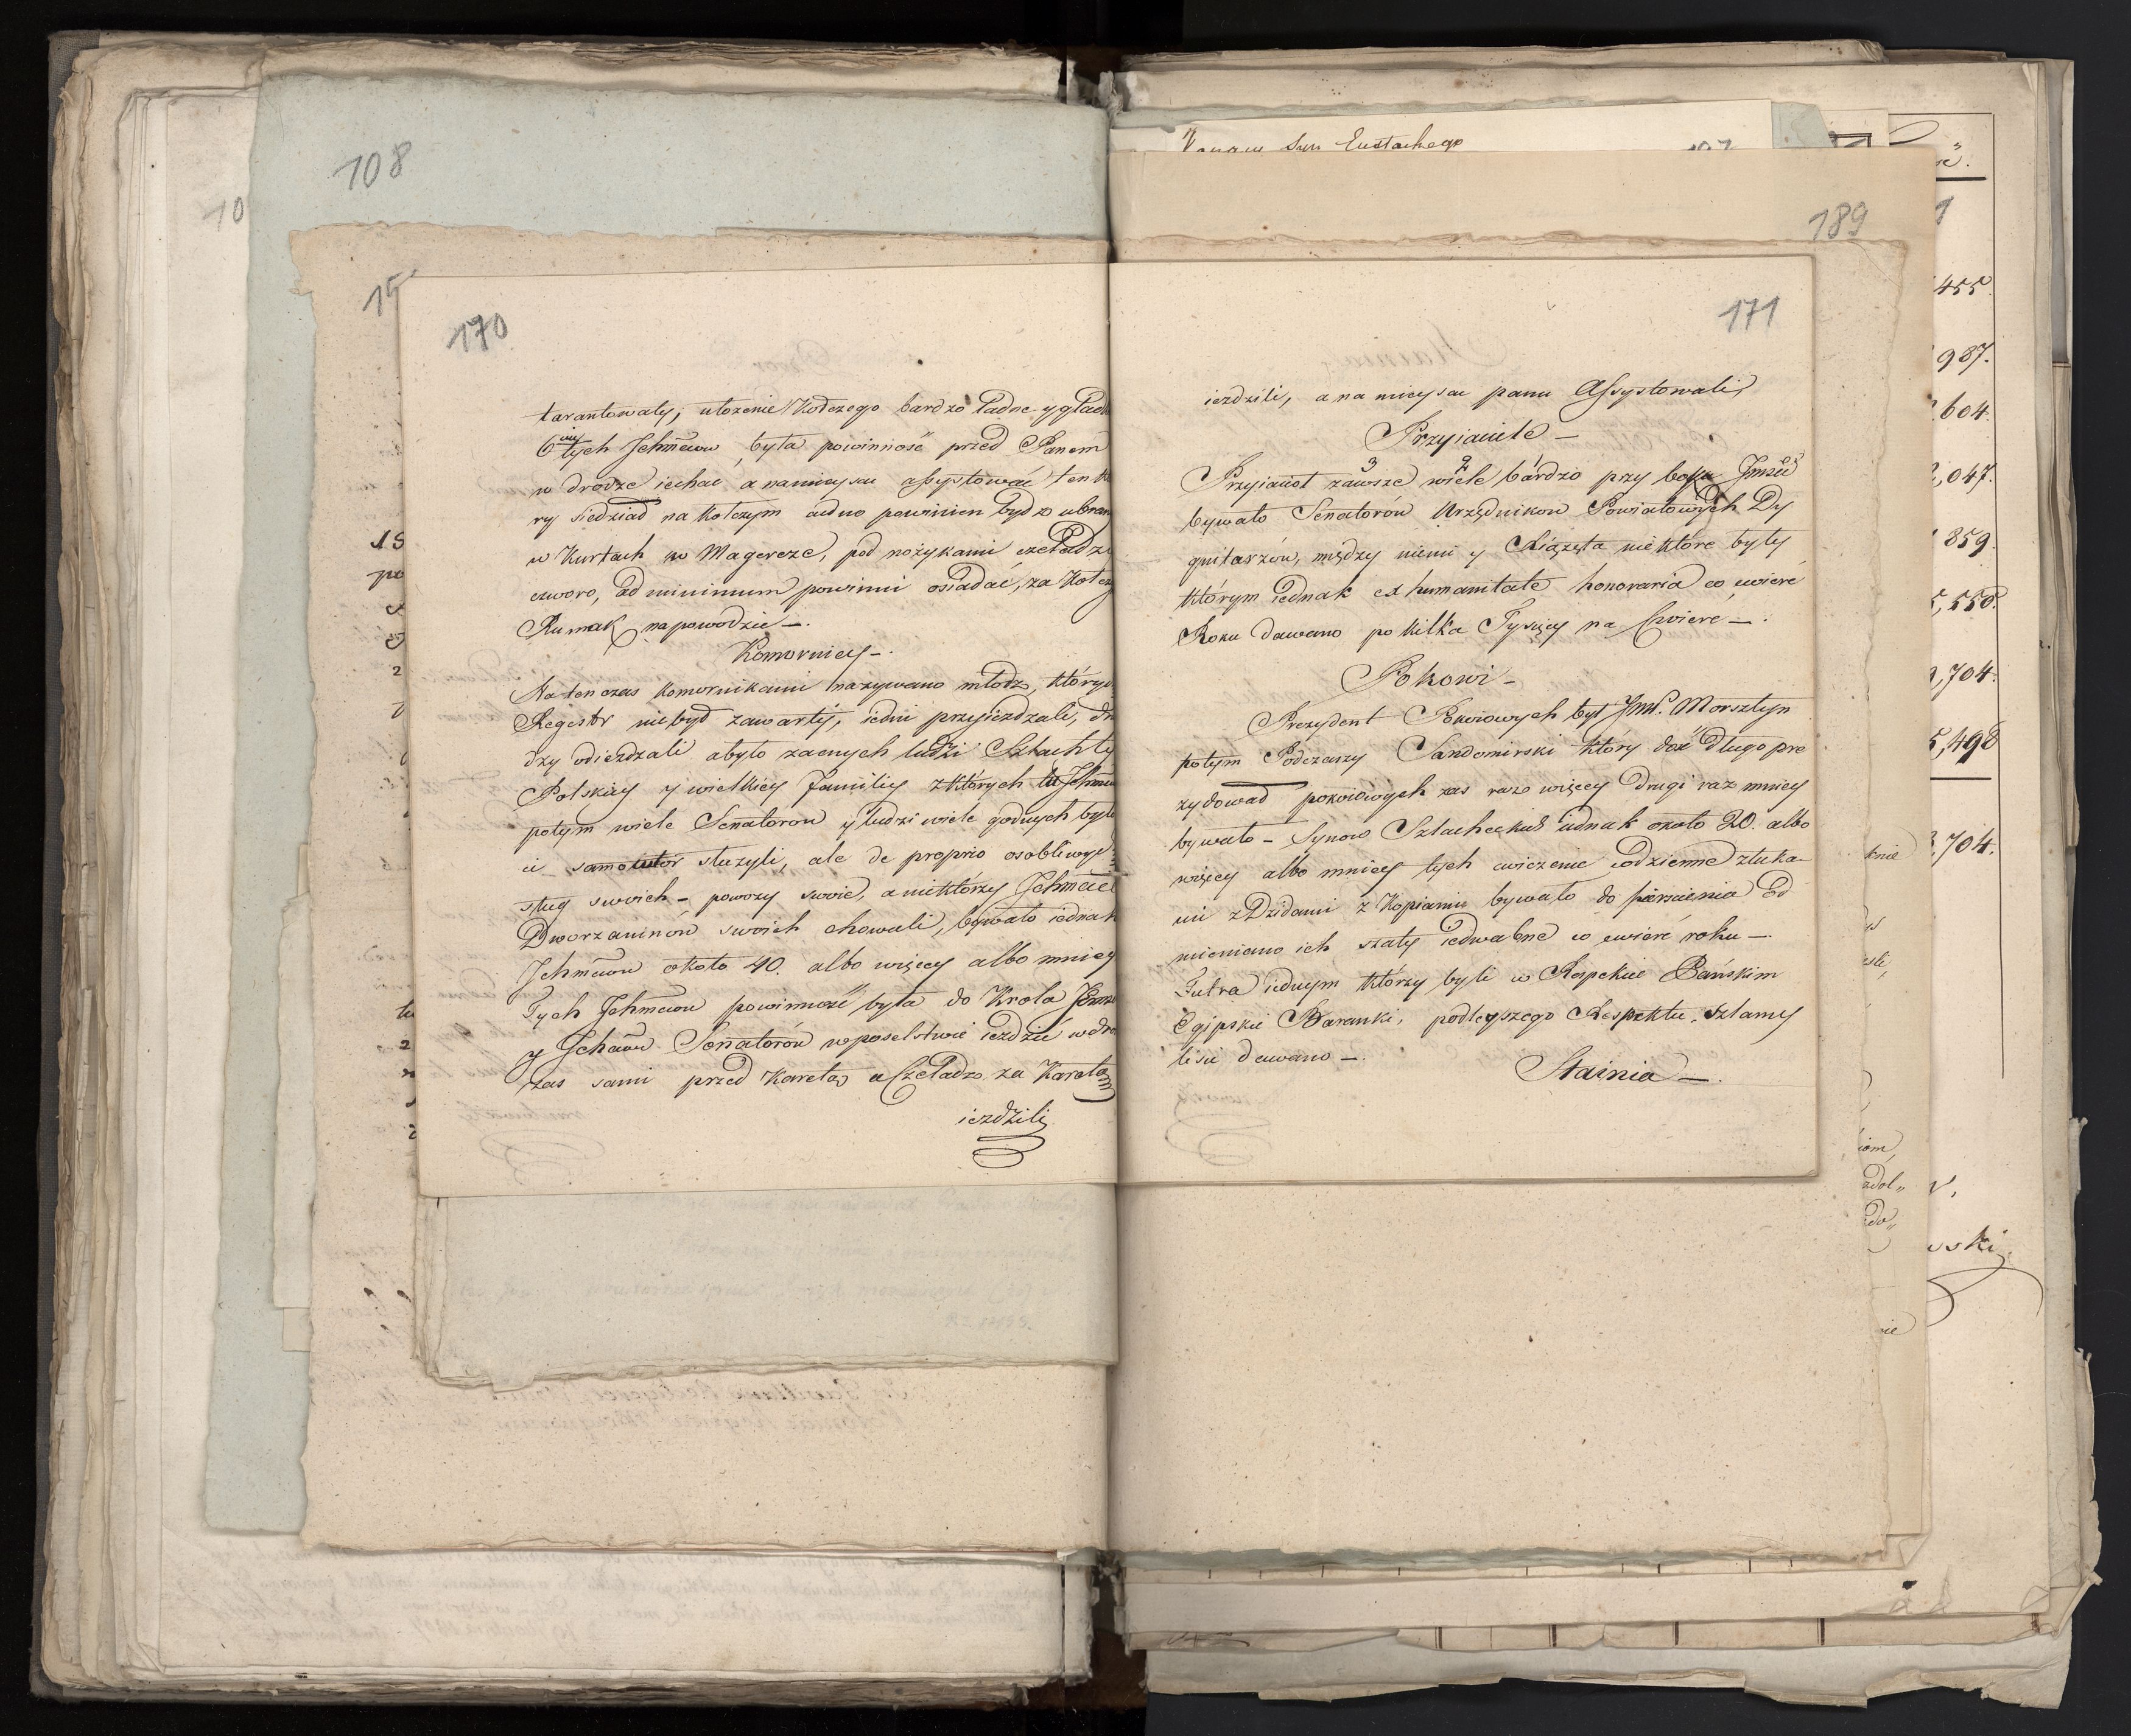 108
10
15
170
tarantowaty, ułożenie Kotczego bardzo ładne y gład
6ciu tych Jchmciow, była powinność przed Panem
w drodze iechac a namieyscu assystować ten k
ry siedział na Kotczym cudno powinien bydz ubran
w Kurtach w Magierze, pod nożykami czeladzi
czworo, ad minimum powinni osiadać, za Kotcz
Rumak na powodzie —.
Komornicy —.
Na ten czas Komornikami nazywano młodz, których
Regestr niebył zawarty, iedni przyieżdzali, dru
dzy odieżdzali a było zacnych ludzi Szlachty
Polskiey y wielkiey Familiy z których tu Jchmciow
potym wiele Senatorow y ludzi wiele godnych było
ci samotutor służyli, ale de proprio osobliwych
sług swoich — powozy swoie, a niektórzy Jchmcie
Dworzaninów swoich chowali, bywało iednak
Jchmciow około 40. albo więcey albo mniey
Tych Jchmciow powinność była do Krola Jmci
y Jchmciow Senatorów w poselstwie ieździć w dro
zas sami przed Karetą a Czeladz za Karetą
ieździli
189
171
ieździli, a na mieyscu panu Assystowali,
Przyiaciele —
Przyiacioł zawsze wiele bardzo przy boku Jmści
3 2 1
bywało Senatorów Urzędnikow Powiatowych Dy
gnitarzów, między niemi y Xiążęta niektóre były
którym iednak ex humanitate honoraria co cwierć
Roku dawano po kilka Tysięcy na Cwierc —.
Pokowi —
Prezydent Pokoiowych był JmP. Morsztyn
potym Podczaszy Sandomirski który dosć długo pre
zydował pokoiowych zas razo więcey drugi raz mniey
bywało — Synow Szlacheckich iednak około 20. albo
więcey albo mniey tych cwiczenie codzienne z łuka
mi z Dzidami z Kopiami bywało do pierscienia Od
mieniano ich szaty iedwabne co cwierć roku —.
Futra iednym którzy byli w Respekcie Pańskim
Egipskie Baranki, podleyszego Respektu, szlamy
lisie dawano —.
Stainia —.
455.
987.
604.
,047.
859.
5,550.
,704.
5,498
,704.